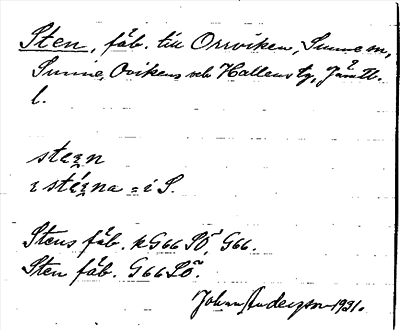 Sten, fäb. till Orrviken, Sunne sn,
Sunne, Ovikens och Hallens tg, Jämtl.
l.
sten
i stena = i S.
Stens fäb. k G66 SÖ, G66.
Sten fäb. G66 SÖ.
Johan Anderzon 1931.